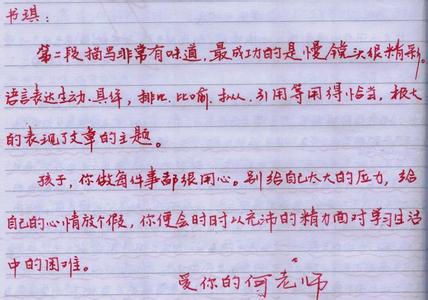 书琪：
第二段描写非常有味道，最成功的是慢镜头很精彩。
语言表达生动、具体，排比、比喻、拟人、引用等用得恰当，极大
的表现了文章的主题。
孩子，你做每件事都很用心。别给自己太大的压力，给
自己的心情放个假，你便会时时以充沛的精力面对学习生活
中的困难。
爱你的何老师